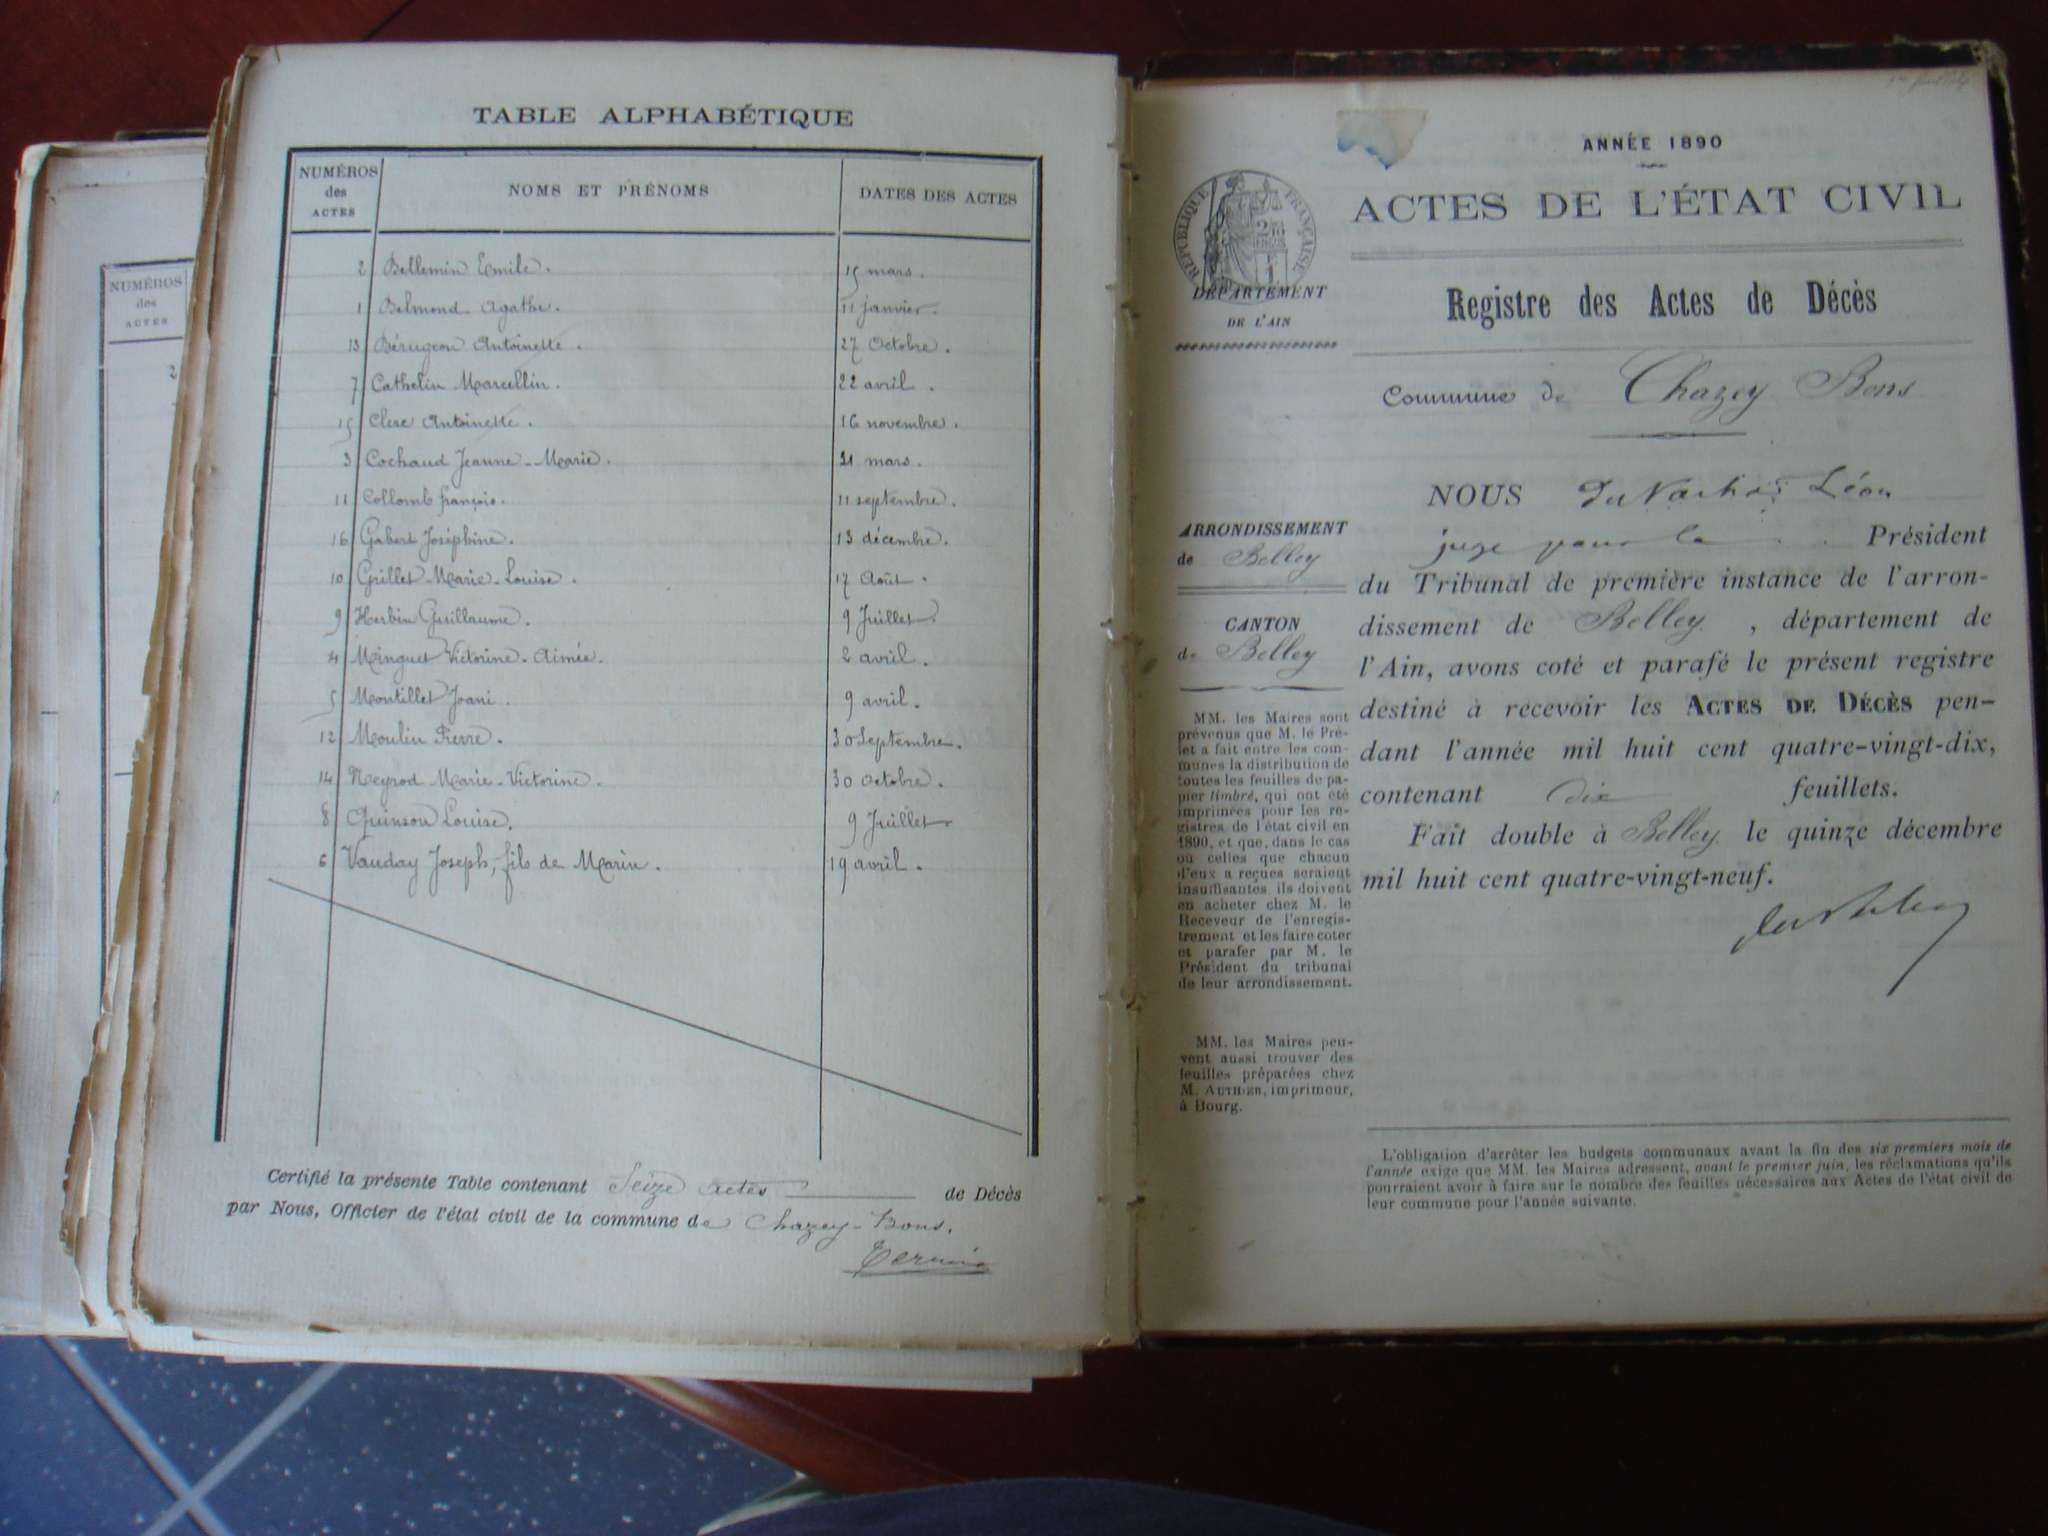 NUMÉROS
des
ACTES
2
TABLE ALPHABÉTIQUE
NUMÉROS des ACTES NOMS ET PRÉNOMS DATES DES ACTES
2 Bellemin Emile. 15 mars.
1 Belmond Agathe. 11 janvier.
13 Bérugeon Antoinette. 27 Octobre.
7 Cathelin Marcellin. 22 avril.
15 Clerc Antoinette. 16 novembre.
3 Cochaud Jeanne-Marie. 21 mars.
11 Collomb françois. 11 septembre.
16 Gabert Joséphine. 13 décembre.
10 Grillet Marie-Louise. 17 Août.
9 Herbin Guillaume. 9 Juillet.
4 Minguet Victorine-Aimée. 2 avril.
5 Montillet Joani. 9 avril.
12 Moulin Pierre. 30 Septembre.
14 Neyrod Marie-Victorine. 30 octobre.
8 Quinson Louise. 9 Juillet
6 Vauday Joseph, fils de Marin. 19 avril.
Certifié la présente Table contenant Seize actes de Décès
par Nous, Officier de l'état civil de la commune de Chazey-Bons.
ANNÉE 1890
ACTES DE L'ÉTAT CIVIL
RÉPUBLIQUE FRANÇAISE
DÉPARTEMENT
DE L'AIN
Registre des Actes de Décès
Commune de Chazey Bons
ARRONDISSEMENT
de Belley
CANTON
de Belley
MM. les Maires sont
prévenus que M. le Pré-
fet a fait entre les com-
munes la distribution de
toutes les feuilles de pa-
pier timbré, qui ont été
imprimées pour les re-
gistres de l'état civil en
1890, et que, dans le cas
où celles que chacun
d'eux a reçues seraient
insuffisantes ils doivent
en acheter chez M. le
Receveur de l'enregis-
trement et les faire coter
et parafer par M. le
Président du tribunal
de leur arrondissement.
MM. les Maires peu-
vent aussi trouver des
feuilles préparées chez
M. AUTHIER, imprimeur,
à Bourg.
NOUS Léon
juge pour le Président
du Tribunal de première instance de l'arron-
dissement de Belley, département de
l'Ain, avons coté et parafé le présent registre
destiné à recevoir les ACTES DE DÉCÈS pen-
dant l'année mil huit cent quatre-vingt-dix,
contenant dix feuillets.
Fait double à Belley le quinze décembre
mil huit cent quatre-vingt-neuf.
L'obligation d'arrêter les budgets communaux avant la fin des six premiers mois de
l'année exige que MM. les Maires adressent, avant le premier juin, les réclamations qu'ils
pourraient avoir à faire sur le nombre des feuilles nécessaires aux Actes de l'état civil de
leur commune pour l'année suivante.